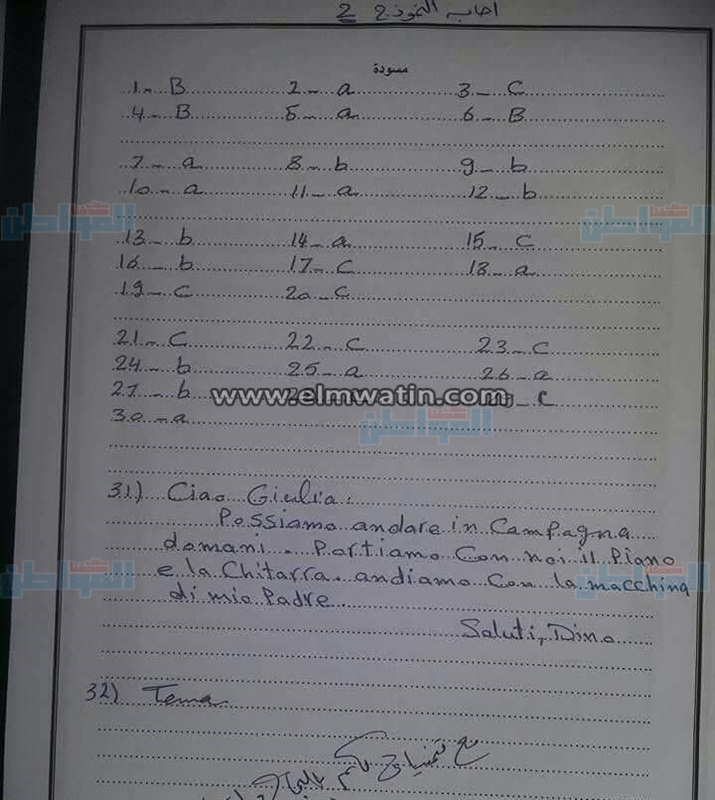 اجابه النموذج 2
مسودة
1- B 2- a 3- C
4- B 5- a 6- B
7- a 8- b 9- b
10- a 11- a 12- b
13- b 14- a 15- c
16- b 17- c 18- a
19- c 20- c
21- c 22- c 23- c
24- b 25- a 26- a
27- b c
www.elmwatin.com
30- a
المواطن
31) Ciao Giulia:
Possiamo andare in Campagna
domani. Partiamo Con noi il Piano
e la Chitarra. andiamo Con la macchina
di mio Padre.
Saluti, Dino
32) Tema
مع تمنياتي لكم بالنجاح